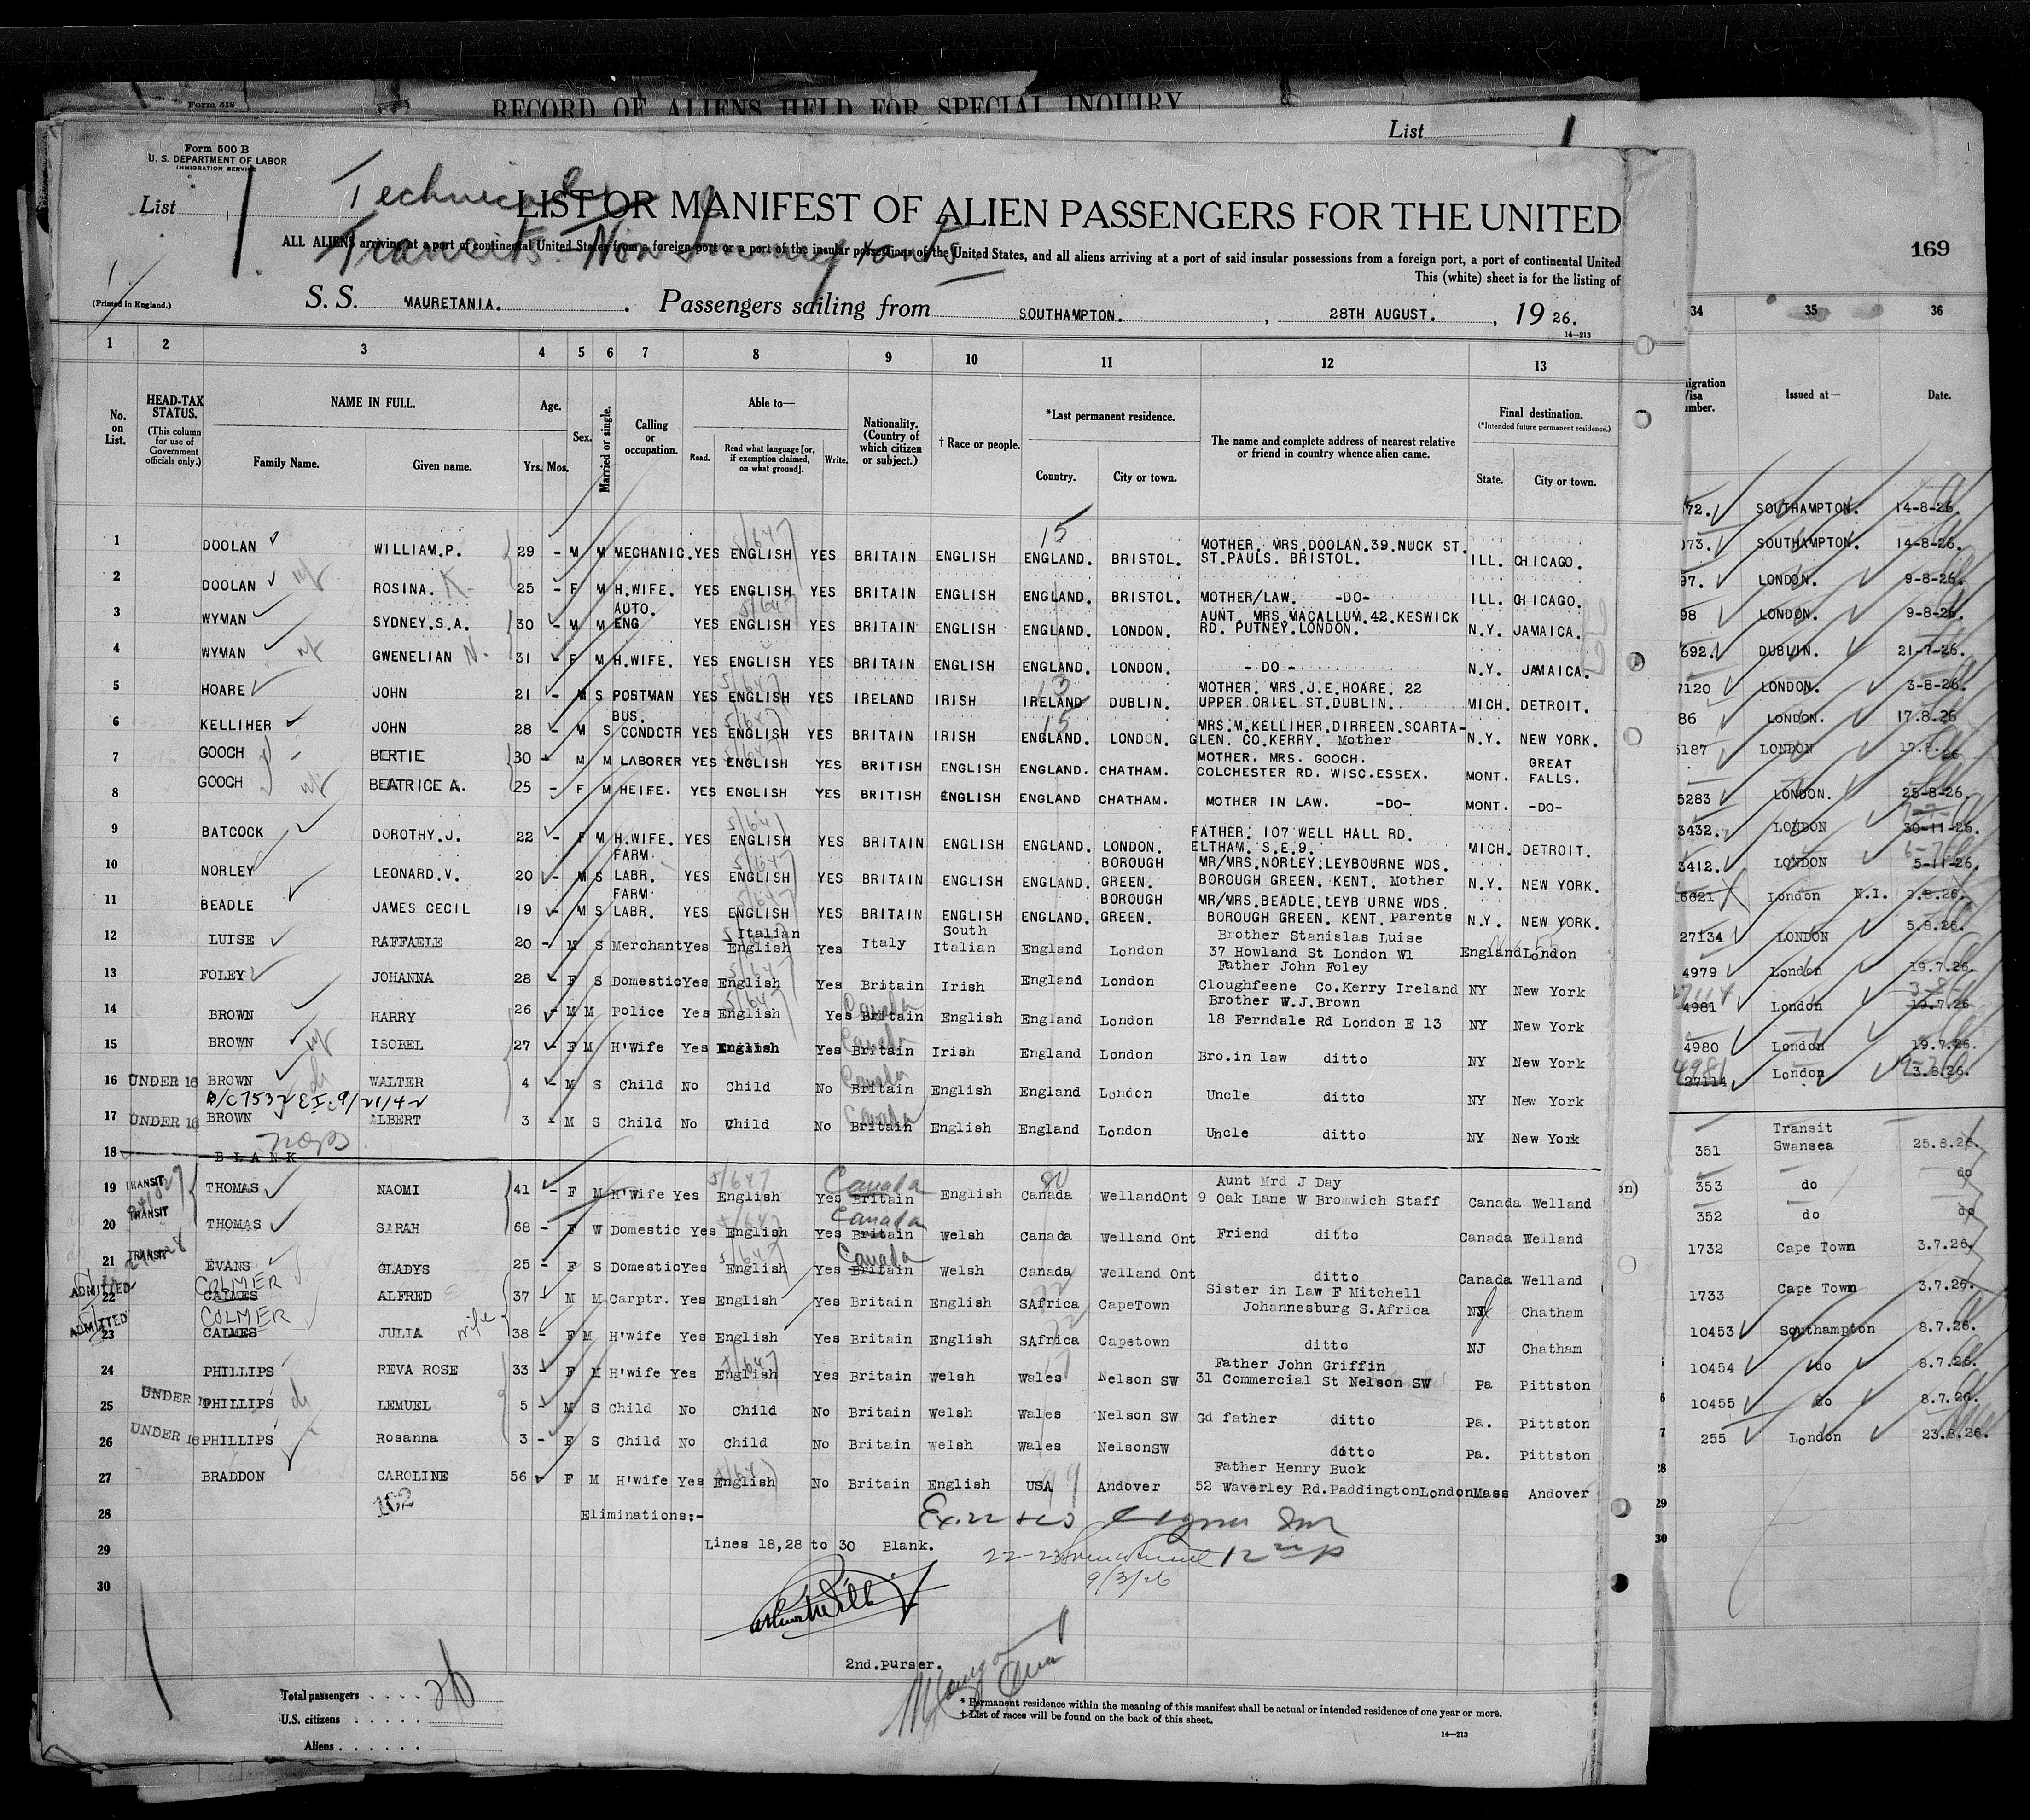 Form 518
RECORD OF ALIENS HELD FOR SPECIAL INQUIRY
List 1
Form 500 B
U. S. DEPARTMENT OF LABOR
IMMIGRATION SERVICE
List 1
Technical
LIST OR MANIFEST OF ALIEN PASSENGERS FOR THE UNITED
ALL ALIENS arriving at a port of continental United States from a foreign port or a port of the insular possessions of the United States, and all aliens arriving at a port of said insular possessions from a foreign port, a port of continental United
Transits Non Immigrants
This (white) sheet is for the listing of
169
(Printed in England.)
S. S. MAURETANIA. Passengers sailing from SOUTHAMPTON. , 28TH AUGUST. , 19 26.
14—213
1 2 3 4 5 6 7 8 9 10 11 12 13 34 35 36
No. on List.
HEAD-TAX STATUS.
(This column for use of Government officials only.)
NAME IN FULL.
Family Name. Given name.
Age.
Yrs. Mos.
Sex.
Married or single.
Calling or occupation.
Able to—
Read. Read what language [or, if exemption claimed, on what ground]. Write.
Nationality. (Country of which citizen or subject.)
† Race or people.
*Last permanent residence.
Country. City or town.
The name and complete address of nearest relative or friend in country whence alien came.
Final destination.
(*Intended future permanent residence.)
State. City or town.
Issued at— Date.
1 DOOLAN WILLIAM.P. 29 - M M MECHANIC. YES ENGLISH YES BRITAIN ENGLISH ENGLAND. BRISTOL. MOTHER. MRS.DOOLAN.39.NUCK ST. ST.PAULS. BRISTOL. ILL. CHICAGO.
2 DOOLAN ROSINA. K. 25 - F M H.WIFE. YES ENGLISH YES BRITAIN ENGLISH ENGLAND. BRISTOL. MOTHER/LAW. -DO- ILL. CHICAGO.
3 WYMAN SYDNEY.S.A. 30 - M M AUTO. ENG YES ENGLISH YES BRITAIN ENGLISH ENGLAND. LONDON. AUNT. MRS.MACALLUM.42.KESWICK RD. PUTNEY.LONDON. N.Y. JAMAICA.
4 WYMAN GWENELIAN N. 31 - F M H.WIFE. YES ENGLISH YES BRITAIN ENGLISH ENGLAND. LONDON. - DO - N.Y. JAMAICA.
5 HOARE JOHN 21 - M S POSTMAN YES ENGLISH YES IRELAND IRISH IRELAND DUBLIN. MOTHER. MRS.J.E.HOARE. 22 UPPER.ORIEL ST.DUBLIN. MICH. DETROIT.
6 KELLIHER JOHN 28 - M S BUS. CONDCTR YES ENGLISH YES BRITAIN IRISH ENGLAND. LONDON. MRS.M.KELLIHER.DIRREEN.SCARTA- GLEN. CO.KERRY. Mother N.Y. NEW YORK.
7 GOOCH BERTIE 30 - M M LABORER YES ENGLISH YES BRITISH ENGLISH ENGLAND. CHATHAM. MOTHER. MRS. GOOCH. COLCHESTER RD. WISC.ESSEX. MONT. GREAT FALLS.
8 GOOCH BEATRICE A. 25 - F M HEIFE. YES ENGLISH YES BRITISH ENGLISH ENGLAND CHATHAM. MOTHER IN LAW. -DO- MONT. -DO-
9 BATCOCK DOROTHY.J. 22 - F M H.WIFE. YES ENGLISH YES BRITAIN ENGLISH ENGLAND. LONDON. FATHER. 107 WELL HALL RD. ELTHAM. S.E.9. MICH. DETROIT.
10 NORLEY LEONARD.V. 20 - M S FARM LABR. YES ENGLISH YES BRITAIN ENGLISH ENGLAND. BOROUGH GREEN. MR/MRS.NORLEY.LEYBOURNE WDS. BOROUGH GREEN. KENT. Mother N.Y. NEW YORK.
11 BEADLE JAMES CECIL 19 - M S FARM LABR. YES ENGLISH YES BRITAIN ENGLISH ENGLAND. BOROUGH GREEN. MR/MRS.BEADLE.LEYB URNE WDS. BOROUGH GREEN. KENT. Parents N.Y. NEW YORK.
12 LUISE RAFFAELE 20 - M S Merchant Yes Italian English Yes Italy South Italian England London Brother Stanislas Luise 37 Howland St London W1 England London
13 FOLEY JOHANNA 28 - F S Domestic Yes English Yes Britain Irish England London Father John Foley Cloughfeene Co.Kerry Ireland NY New York
14 BROWN HARRY 26 - M M Police Yes English Yes Britain Canada English England London Brother W.J.Brown 18 Ferndale Rd London E 13 NY New York
15 BROWN ISOBEL 27 - F M H'Wife Yes English Yes Britain Canada Irish England London Bro.in law ditto NY New York
16 UNDER 16 BROWN WALTER 4 - M S Child No Child No Britain Canada English England London Uncle ditto NY New York
17 UNDER 16 BROWN ALBERT 3 - M S Child No Child No Britain Canada English England London Uncle ditto NY New York
18 BLANK
19 TRANSIT THOMAS NAOMI 41 - F M H'Wife Yes English Yes Britain Canada English Canada WellandOnt Aunt Mrd J Day 9 Oak Lane W Bromwich Staff Canada Welland
20 TRANSIT THOMAS SARAH 68 - F W Domestic Yes English Yes Britain Canada Welsh Canada Welland Ont Friend ditto Canada Welland
21 TRANSIT EVANS GLADYS 25 - F S Domestic Yes English Yes Britain Canada Welsh Canada Welland Ont ditto Canada Welland
22 ADMITTED CALMES COLMER ALFRED 37 - M M Carptr. Yes English Yes Britain English SAfrica CapeTown Sister in Law F Mitchell Johannesburg S.Africa NJ Chatham
23 ADMITTED CALMES COLMER JULIA wife 38 - F M H'wife Yes English Yes Britain English SAfrica Capetown ditto NJ Chatham
24 PHILLIPS REVA ROSE 33 - F M H'wife Yes English Yes Britain Welsh Wales Nelson SW Father John Griffin 31 Commercial St Nelson SW Pa Pittston
25 UNDER 16 PHILLIPS LEMUEL 5 - M S Child No Child No Britain Welsh Wales Nelson SW Gd father ditto Pa. Pittston
26 UNDER 16 PHILLIPS Rosanna 3 - F S Child No Child No Britain Welsh Wales NelsonSW ditto Pa. Pittston
27 BRADDON CAROLINE 56 - F M H'wife Yes English No Britain English USA Andover Father Henry Buck 52 Waverley Rd.PaddingtonLondon Mass Andover
28 Eliminations:-
29 Lines 18,28 to 30 Blank.
30
22-23
9/3/26
2nd.purser.
Total passengers 26
U.S. citizens
Aliens
* Permanent residence within the meaning of this manifest shall be actual or intended residence of one year or more.
† List of races will be found on the back of this sheet.
14—213
72. SOUTHAMPTON. 14-8-26.
73. SOUTHAMPTON. 14-8-26.
97. LONDON. 9-8-26.
98 LONDON. 9-8-26.
692. DUBLIN. 21-7-26.
7120 LONDON. 3-8-26.
86 LONDON. 17.8.26
5187 LONDON 17.8.26
5283 LONDON. 25-8-26.
3432. LONDON 30-11-26.
3412. LONDON 5-11-26.
6621 London N.I. 9.8.26.
27134 LONDON 5.8.26.
4979 London 19.7.26.
4981 London 19.7.26
4980 London 19.7.26.
27114 London 3.8.26.
351 Transit Swansea 25.8.26.
353 do do
352 do do
1732 Cape Town 3.7.26.
1733 Cape Town 3.7.26.
10453 Southampton 8.7.26.
10454 do 8.7.26.
10455 do 8.7.26.
255 London 23.8.26.
28
29
30